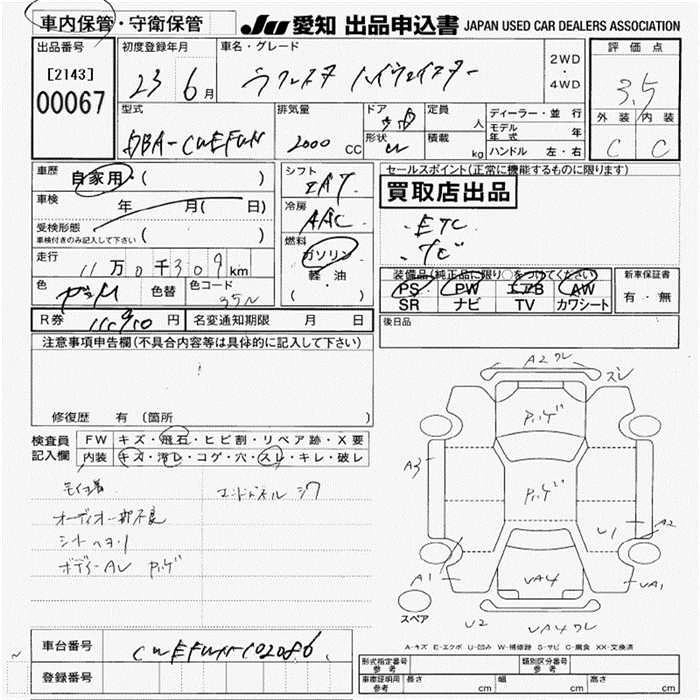 車内保管・守衛保管
JU 愛知 出品申込書 JAPAN USED CAR DEALERS ASSOCIATION
出品番号
[2143]
00067
初度登録年月
23 6 月
車名・グレード
ラフェスタ ハイウェイスター
2WD
・
4WD
評価点
3.5
外装 内装
C C
型式
DBA-CWEFWN
排気量
2000 CC
ドア
形状
定員
人
積載
kg
ディーラー・並行
モデル年式 年
ハンドル 左・右
車歴
自家用 ( )
車検
年 月( 日)
受検形態
車検付きのみ記入して下さい ( )
走行
11万0千309km
色
色替
色コード
35N
シフト
IAT
冷房
AAC
燃料
ガソリン
軽・油
( ・ )
セールスポイント(正常に機能するものに限ります)
買取店出品
・ETC
・ナビ
装備品(純正品に限り○をつけてください)
PS PW エアB AW
SR ナビ TV カワシート
新車保証書
有・無
後日品
R券 円
名変通知期限 月 日
注意事項申告欄(不具合内容等は具体的に記入して下さい)
修復歴 有 (箇所
検査員
記入欄
FW キズ・飛石・ヒビ割・リペア跡・X要
内装 キズ・汚レ・コゲ・穴・スレ・キレ・破レ
オーディオ一部不良
シートヘタリ
A2
ズレ
A3
U1
A2
A1
VA4
VA1
U2
VA4
スペア
A-キズ E-エクボ U-凹み W-補修跡 S-サビ C-腐食 XX-交換済
車台番号
CWEFWN-102086
登録番号
形式指定番号
参考
類別区分番号
参考
車庫証明用
参考
長さ cm
幅 cm
高さ cm